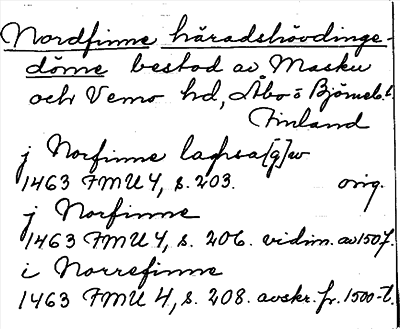 Nordfinne häradshövdinge-
döme bestod av Masku
och Vemo hd, Åbo o Björneb. l.
Finland
j Norfinne laghsa[g]w
1463 FMU 4, s. 203. orig.
j Norfinne
1463 FMU 4, s. 206. vidim. av 1507.
i Norrefinne
1463 FMU 4, s. 208. avskr. fr. 1500-t.